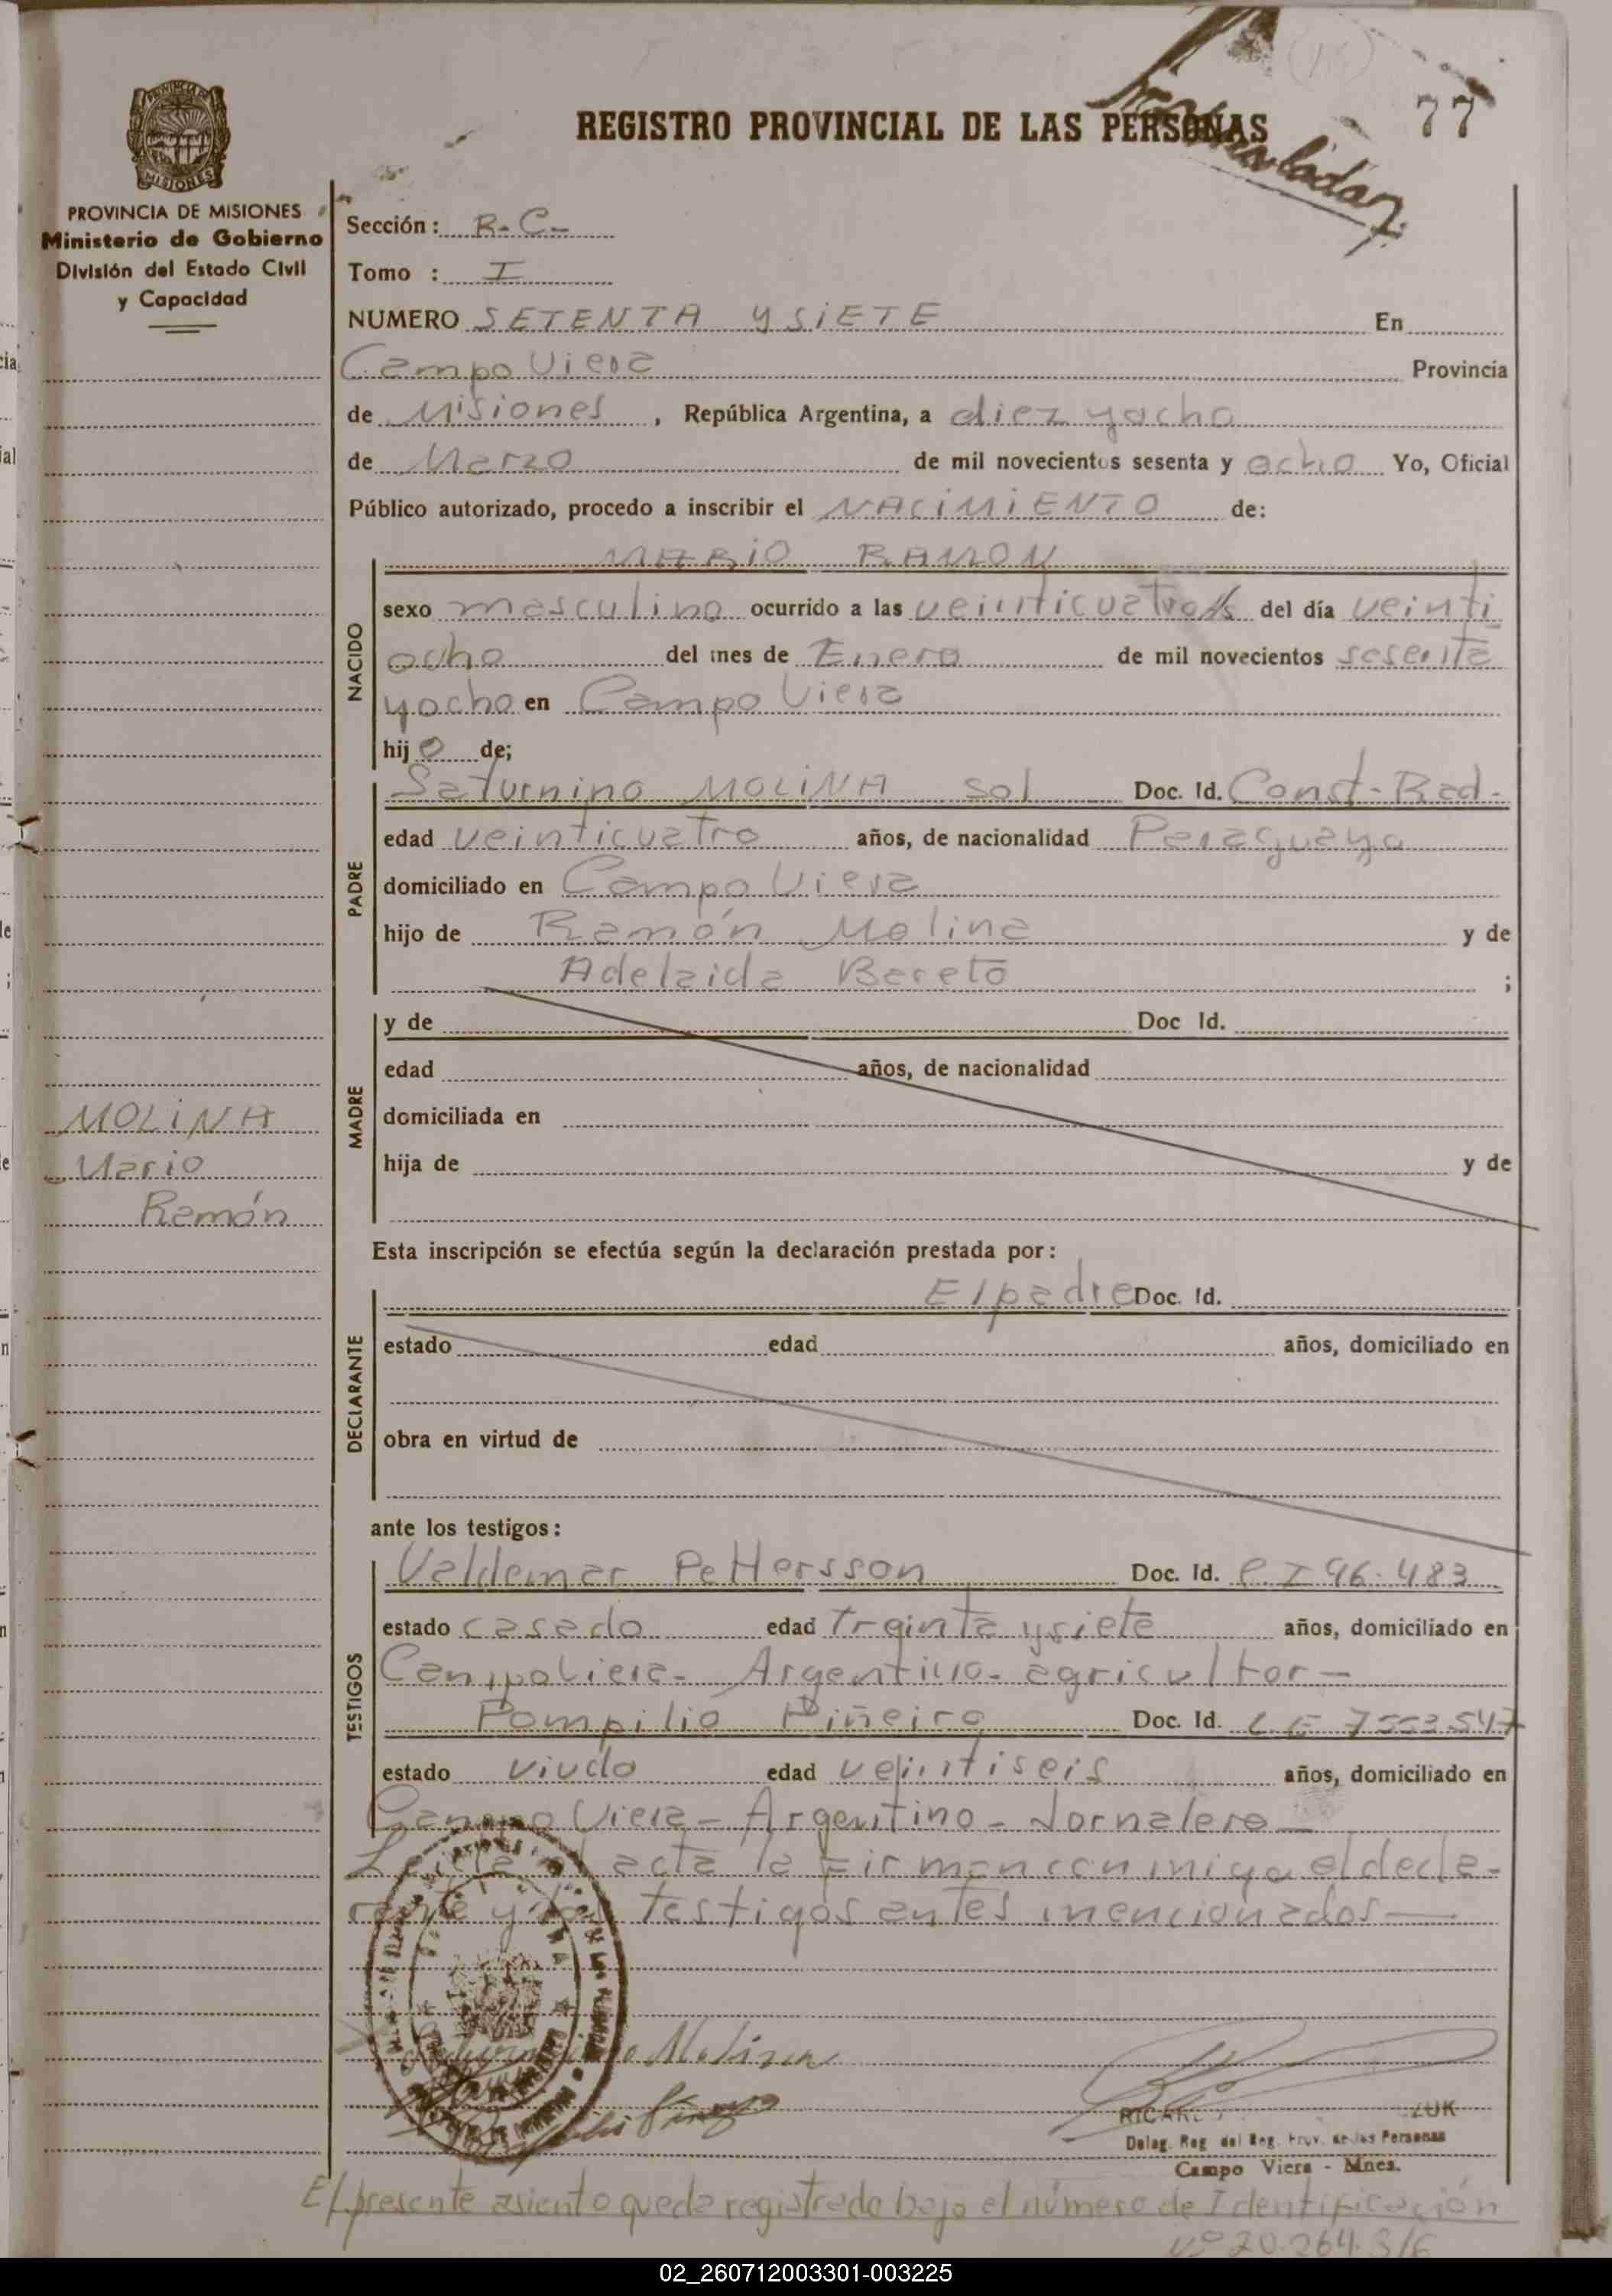 77
Trasladar
REGISTRO PROVINCIAL DE LAS PERSONAS
PROVINCIA DE MISIONES
Ministerio de Gobierno
División del Estado Civil
y Capacidad
Sección: R-C-
Tomo : I
NUMERO SETENTA Y SiETE En
Campo Viera Provincia
de Misiones , República Argentina, a diez y ocho
de Marzo de mil novecientos sesenta y ocho Yo, Oficial
Público autorizado, procedo a inscribir el NACiMiENTO de:
MARiO RAMON
NACIDO
sexo masculino ocurrido a las veinticuatro hs del día veinti
ocho del mes de Enero de mil novecientos sesenta
y ocho en Campo Viera
hijo de;
PADRE
Saturnino MOLiNA sol Doc. Id. Const-Rad-
edad veinticuatro años, de nacionalidad Paraguaya
domiciliado en Campo Viera
hijo de Ramón Molina y de
Adelaida Bareto ;
MADRE
y de Doc Id.
edad años, de nacionalidad
domiciliada en
hija de y de
MOLiNA
Mario
Ramón
Esta inscripción se efectúa según la declaración prestada por:
DECLARANTE
El padre Doc. Id.
estado edad años, domiciliado en
obra en virtud de
ante los testigos:
TESTIGOS
Valdemar Pettersson Doc. Id. C I 96.483
estado casado edad Treinta y siete años, domiciliado en
Campo Viera- Argentino- agricultor-
Pompilio Piñeiro Doc. Id. L E 7553547
estado viudo edad veintiseis años, domiciliado en
Campo Viera- Argentino- Jornalero-
acta la Firman conmigo el decla-
rante y los testigos antes mencionados-
Molina
Delag. Reg del Reg. Prov. de las Personas
Campo Viera - Mnes.
El presente asiento queda registrado bajo el número de Identificación
nº 20.264.316
02_260712003301-003225